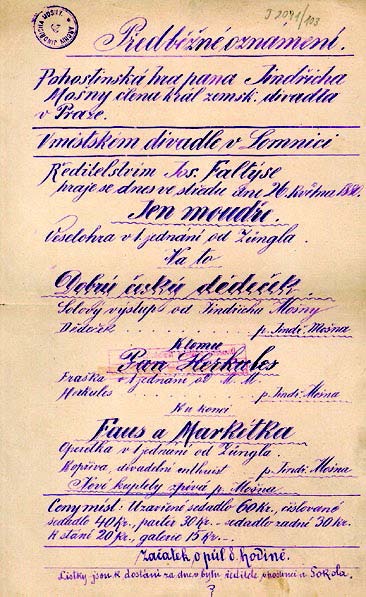 J 2041/103
Předběžné oznámení.
Pohostinská hra pana Jindřicha
Mošny člena král. zemsk. divadla
v Praze.
V městském divadle v Lomnici
Ředitelstvím Jos. Faltýse
hraje se dnes ve středu dne 26. května 1880.
Jen moudře.
Veselohra v 1 jednání od Züngla.
Na to
Dobrý český dědeček
Solový výstup od Jindřicha Mošny
Dědeček . . . . . . . . . . . p. Jindř. Mošna
K tomu
Pan Herkules
Fraška v 1 jednání od
Herkules . . . . . . . . . p. Jindř. Mošna
Ku konci
Faus a Markitka
Operetka v 1 jednání od Züngla.
Kopřiva, divadelní p. Jindř. Mošna
Nové kuplety zpívá p. Mošna
Ceny míst: Uzavřené sedadlo 60 kr., číslované
sedadlo 40 kr., parter 30 kr. - sedadlo zadní 30 kr.
K stání 20 kr., galerie 15 kr. -
Začátek o půl 8. hodině.
Lístky jsou k dostání za dne v bytu ředitele, Sokola.